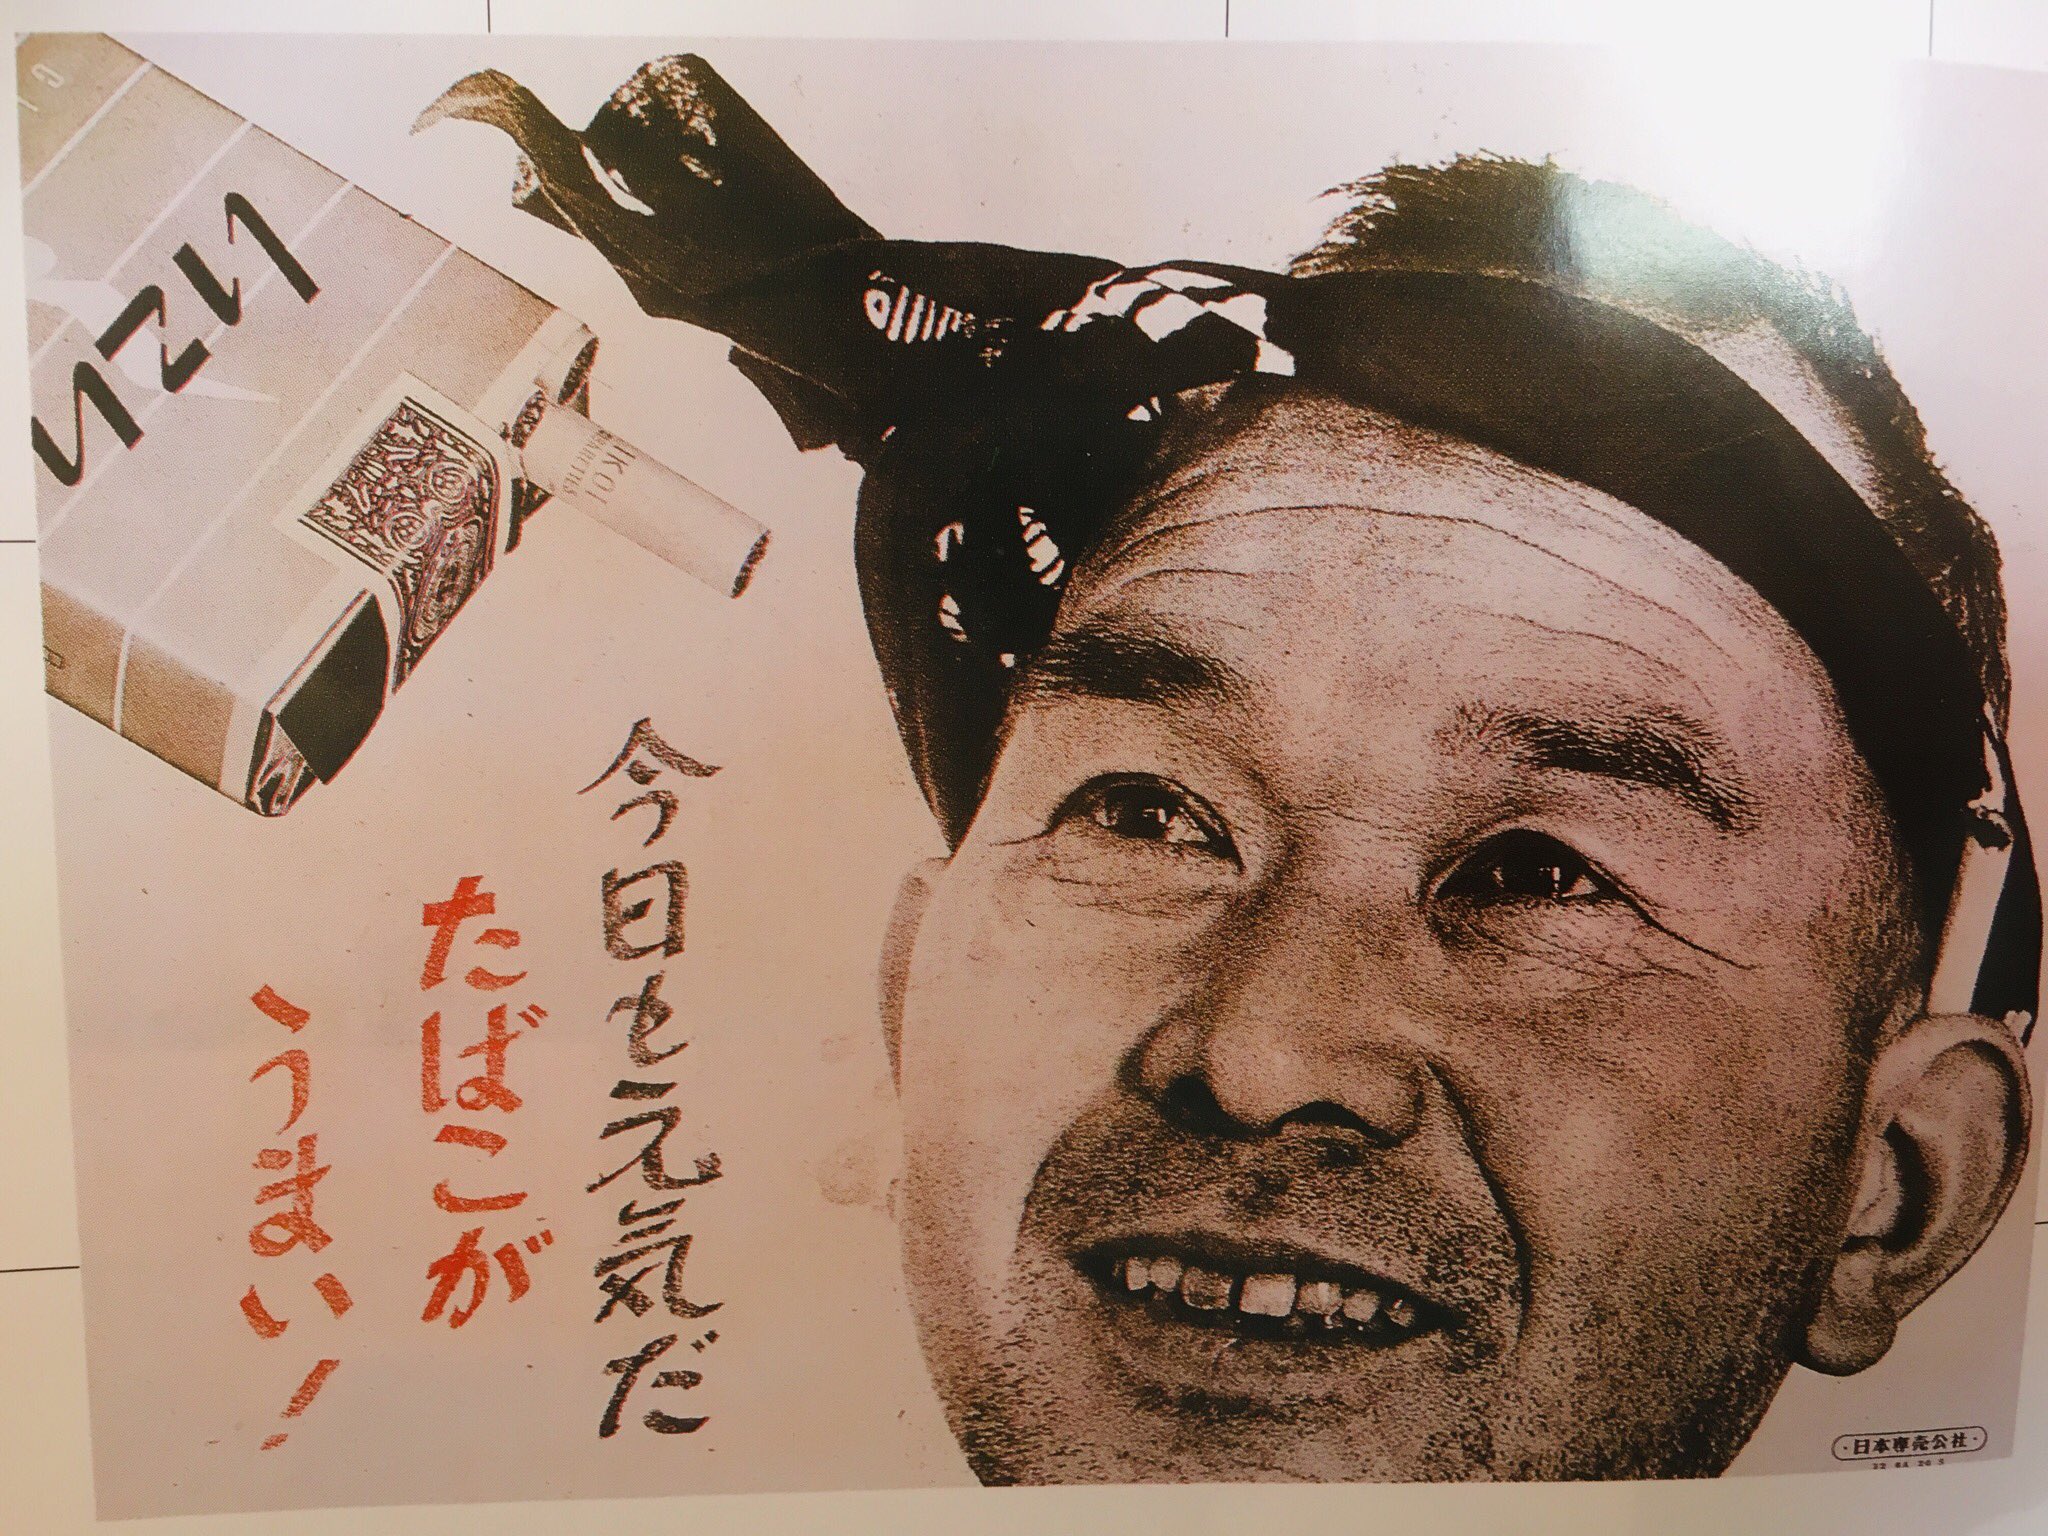 今日も元気だ
たばこが
うまい!
いこい
日本専売公社